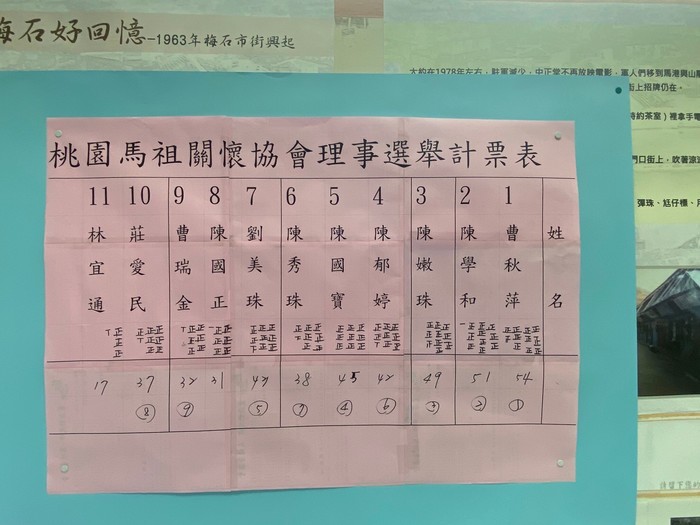 梅石好回憶–1963年梅石市街興起
大約在1978年左右，駐軍減少，中正堂不再放映電影，軍人們移到馬港與山
街上招牌仍在。
特約茶室）裡拿手電
門口街上，吹著涼
彈珠、尪仔標、
桃園馬祖關懷協會理事選舉計票表
11 10 9 8 7 6 5 4 3 2 1
林宜通 莊愛民 曹瑞金 陳國正 劉美珠 陳秀珠 陳國寶 陳郁婷 陳嫩珠 陳學和 曹秋萍 姓名
17 37 32 31 42 38 45 42 49 51 54
⑧ ⑨ ⑤ ⑦ ④ ⑥ ③ ② ①